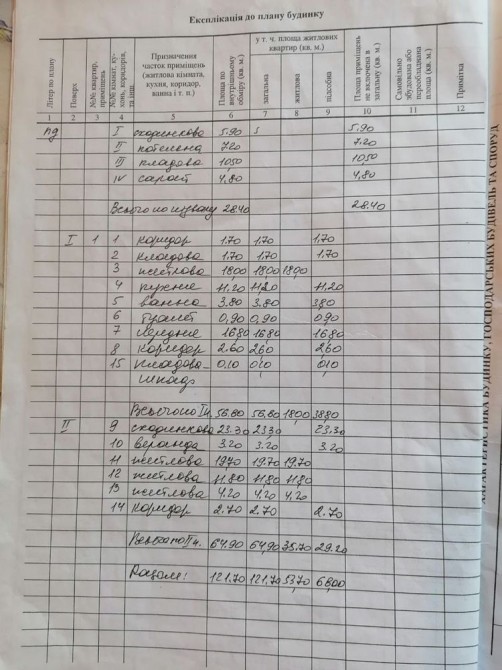 Експлікація до плану будинку
Літер по плану | Поверх | №№ квартир, приміщень | №№ кімнат, кухонь, коридорів, та інш. | Призначення часток приміщень (житлова кімната, кухня, коридор, ванна і т. п.) | Площа по внутрішньому обміру (кв. м.) | у т. ч. площа житлових квартир (кв. м.) | загальна | житлова | підсобна | Площа приміщень не включена в загальну (кв. м.) | Самовільно збудована або переобладнана площа (кв. м.) | Примітка
1 2 3 4 5 6 7 8 9 10 11 12
пд I сходинкова 5.90 5.90
II котельна 7.20 7.20
III кладова 10.50 10.50
IV сарай 4,80 4,80
Всього по підвалу 28.40 28.40
I 1 1 коридор 1,70 1,70 1,70
2 кладова 1.70 1.70 1.70
3 житлова 18.00 18.00 18.00
4 кухня 11,20 11,20 11,20
5 ванна 3.80 3.80 3.80
6 туалет 0,90 0,90 0.90
7 передня 16.80 16.80 16.80
8 коридор 2.60 2.60 2.60
15 кладова- 0.10 0.10 0.10
шкаф
Всього по I п. 56.80 56.80 18.00 38.80
II 9 сходинкова 23.30 23.30 23.30
10 веранда 3.20 3.20 3.20
11 житлова 19.70 19.70 19.70
12 житлова 11.80 11.80 11.80
13 житлова 4.20 4.20 4.20
14 коридор 2.70 2.70 2.70
Всього по II п. 64.90 64.90 35.70 29.20
Разом: 121.70 121.70 53.70 68.00
ХАРАКТЕРИСТИКА БУДИНКУ, ГОСПОДАРСЬКИХ БУДІВЕЛЬ ТА СПОРУД